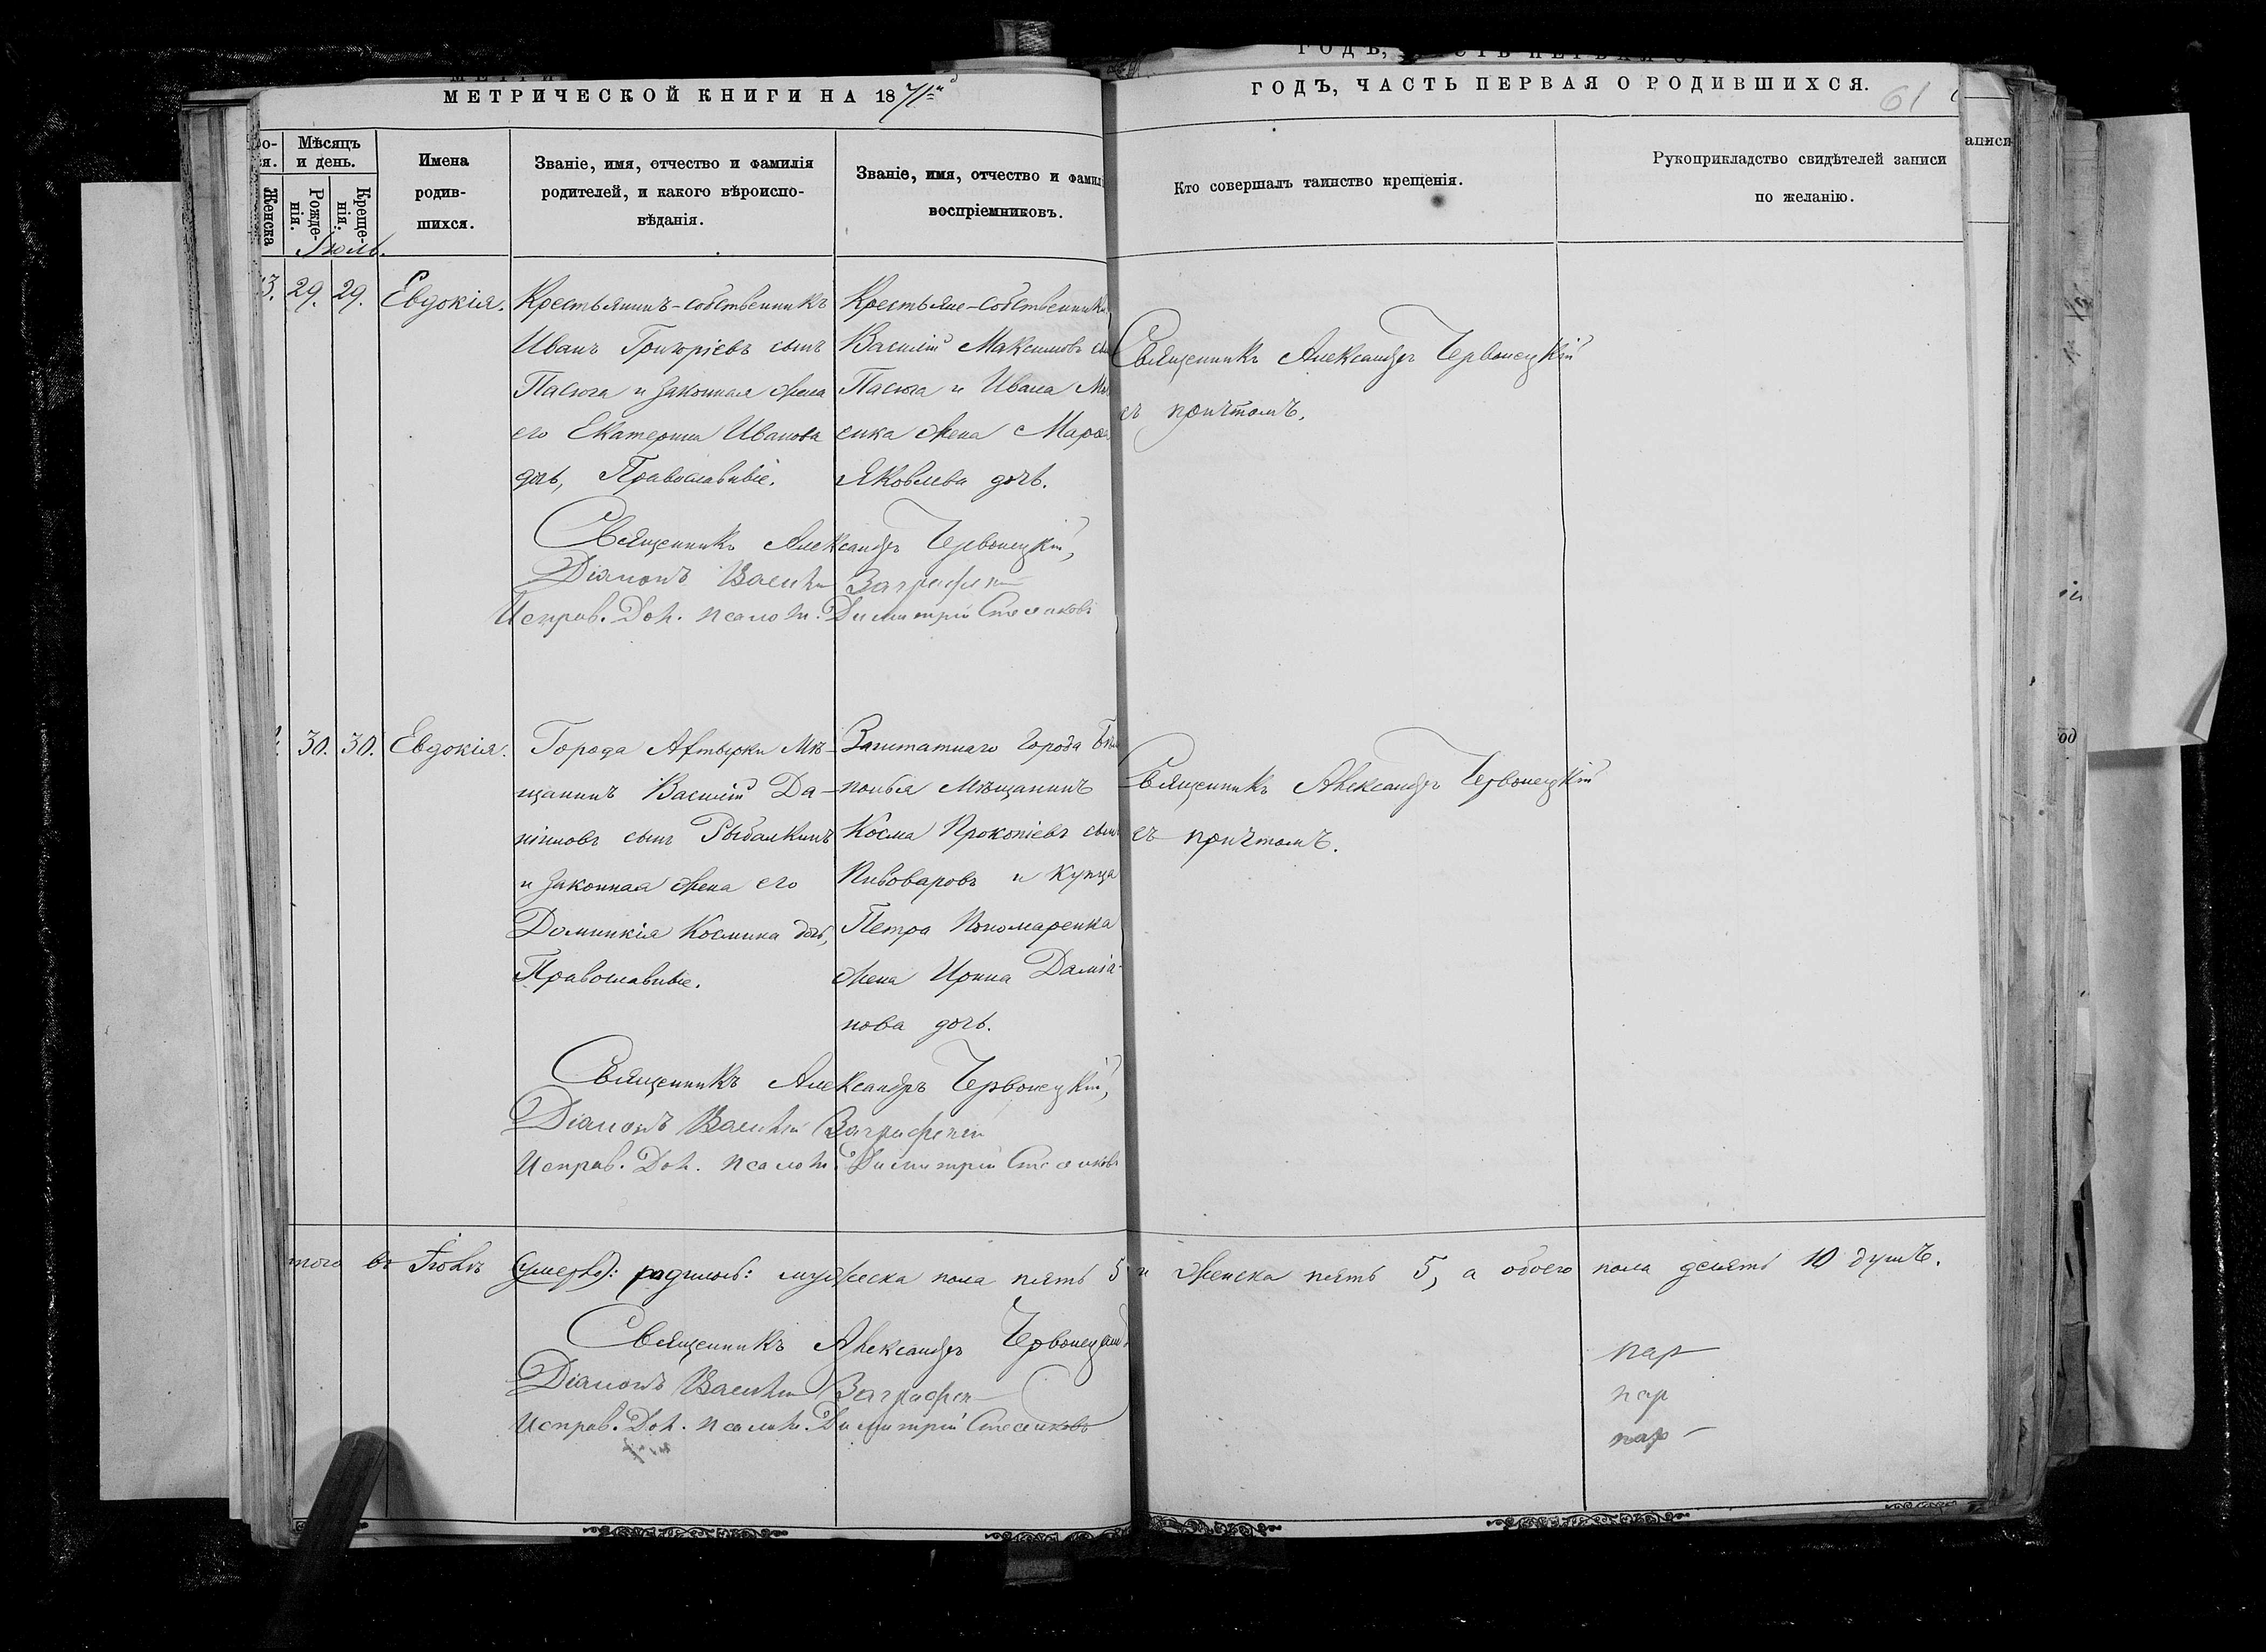 МЕТРИЧЕСКОЙ КНИГИ НА 1871й
ГОДЪ, ЧАСТЬ ПЕРВАЯ О РОДИВШИХСЯ.
61
Мѣсяцъ и день.
Женска
Рожденія.
Крещенія.
Имена родившихся.
Званіе, имя, отчество и фамилія
родителей, и какого вѣроиспо-
вѣданія.
Званіе, имя, отчество и фамил
воспріемниковъ.
Кто совершалъ таинство крещенія.
Рукоприкладство свидѣтелей записи
по желанію.
аписи
Іюль.
3. 29. 29. Евдокія.
Крестьянинъ-собственникъ
Иванъ Григоріевъ сынъ
Пасюга и законная жена
его Екатерина Иванова
дочь, Православные.
Крестьяне-собственники
Василій Максимовъ сы
Пасюга и Ивана
енка жена Марѳа
Яковлева дочь.
Священникъ Александръ Червонецкій
съ причтомъ.
Священникъ Александръ Червонецкій,
Діаконъ Василій
Исправ. Дол. псалом. Димитрій
30. 30. Евдокія.
Города Ахтырки Мѣ-
щанинъ Василій Да-
ніиловъ сынъ Рыбалкинъ
и законная жена его
Домникія Космина дочь,
Православные.
Заштатнаго города Бѣло
полья Мѣщанинъ
Косма Прокопіевъ сынъ
Пивоваровъ и Купца
Петра Пономаренка
жена Ирина Даміа-
нова дочь.
Священникъ Александръ Червонецкій
съ причтомъ.
Священникъ Александръ Червонецкій,
Діаконъ Василій
Исправ. Дол. псалом. Димитрій
того въ Іюлѣ родилось: мужеска пола пять 5 и женска пять 5, а обоего пола десять 10 душъ.
Священникъ Александръ Червонецкій
Діаконъ Василій
Исправ. Дол. псалом. Димитрій
пар
пар
пар